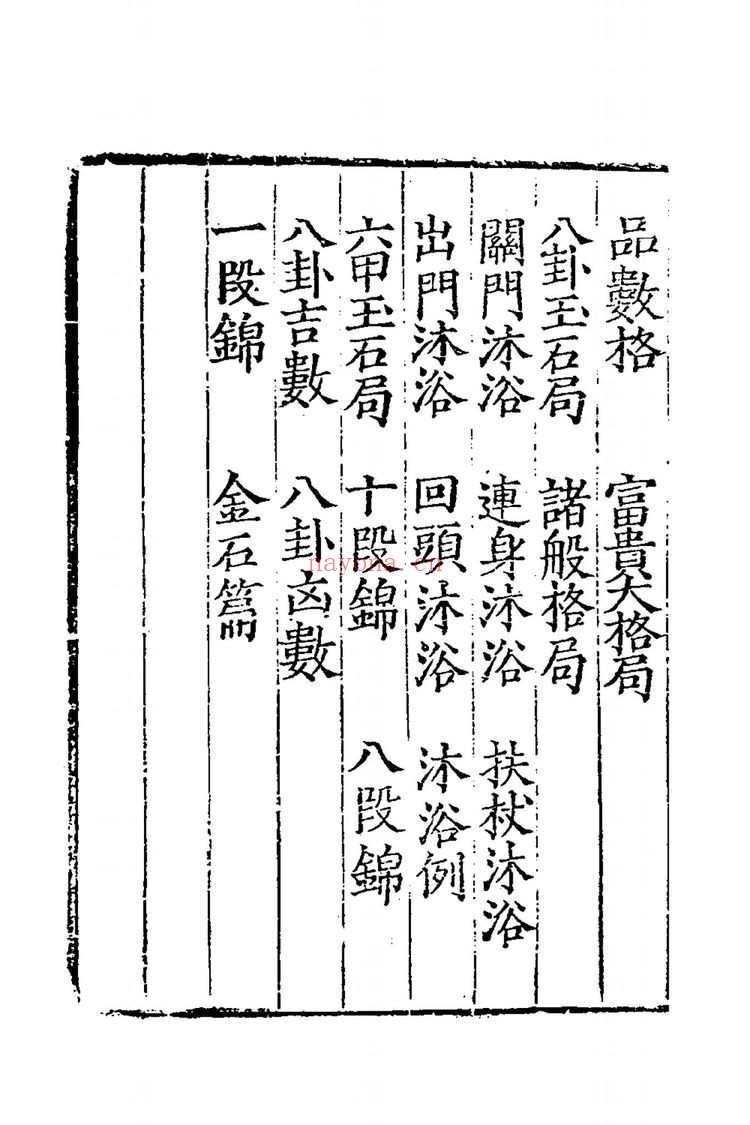 品數格 富貴大格局
八卦玉石局 諸般格局
關門沐浴 連身沐浴 扶杖沐浴
出門沐浴 回頭沐浴 沐浴例
六甲玉石局 十段錦 八段錦
八卦吉數 八卦凶數
一段錦 金石篇
nayona.cn